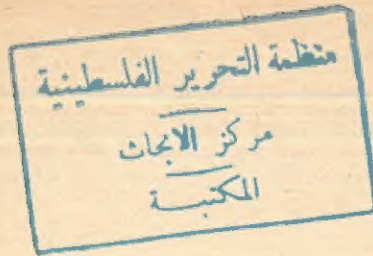 منظمة التحرير الفلسطينية
مركز الابحاث
المكتبة